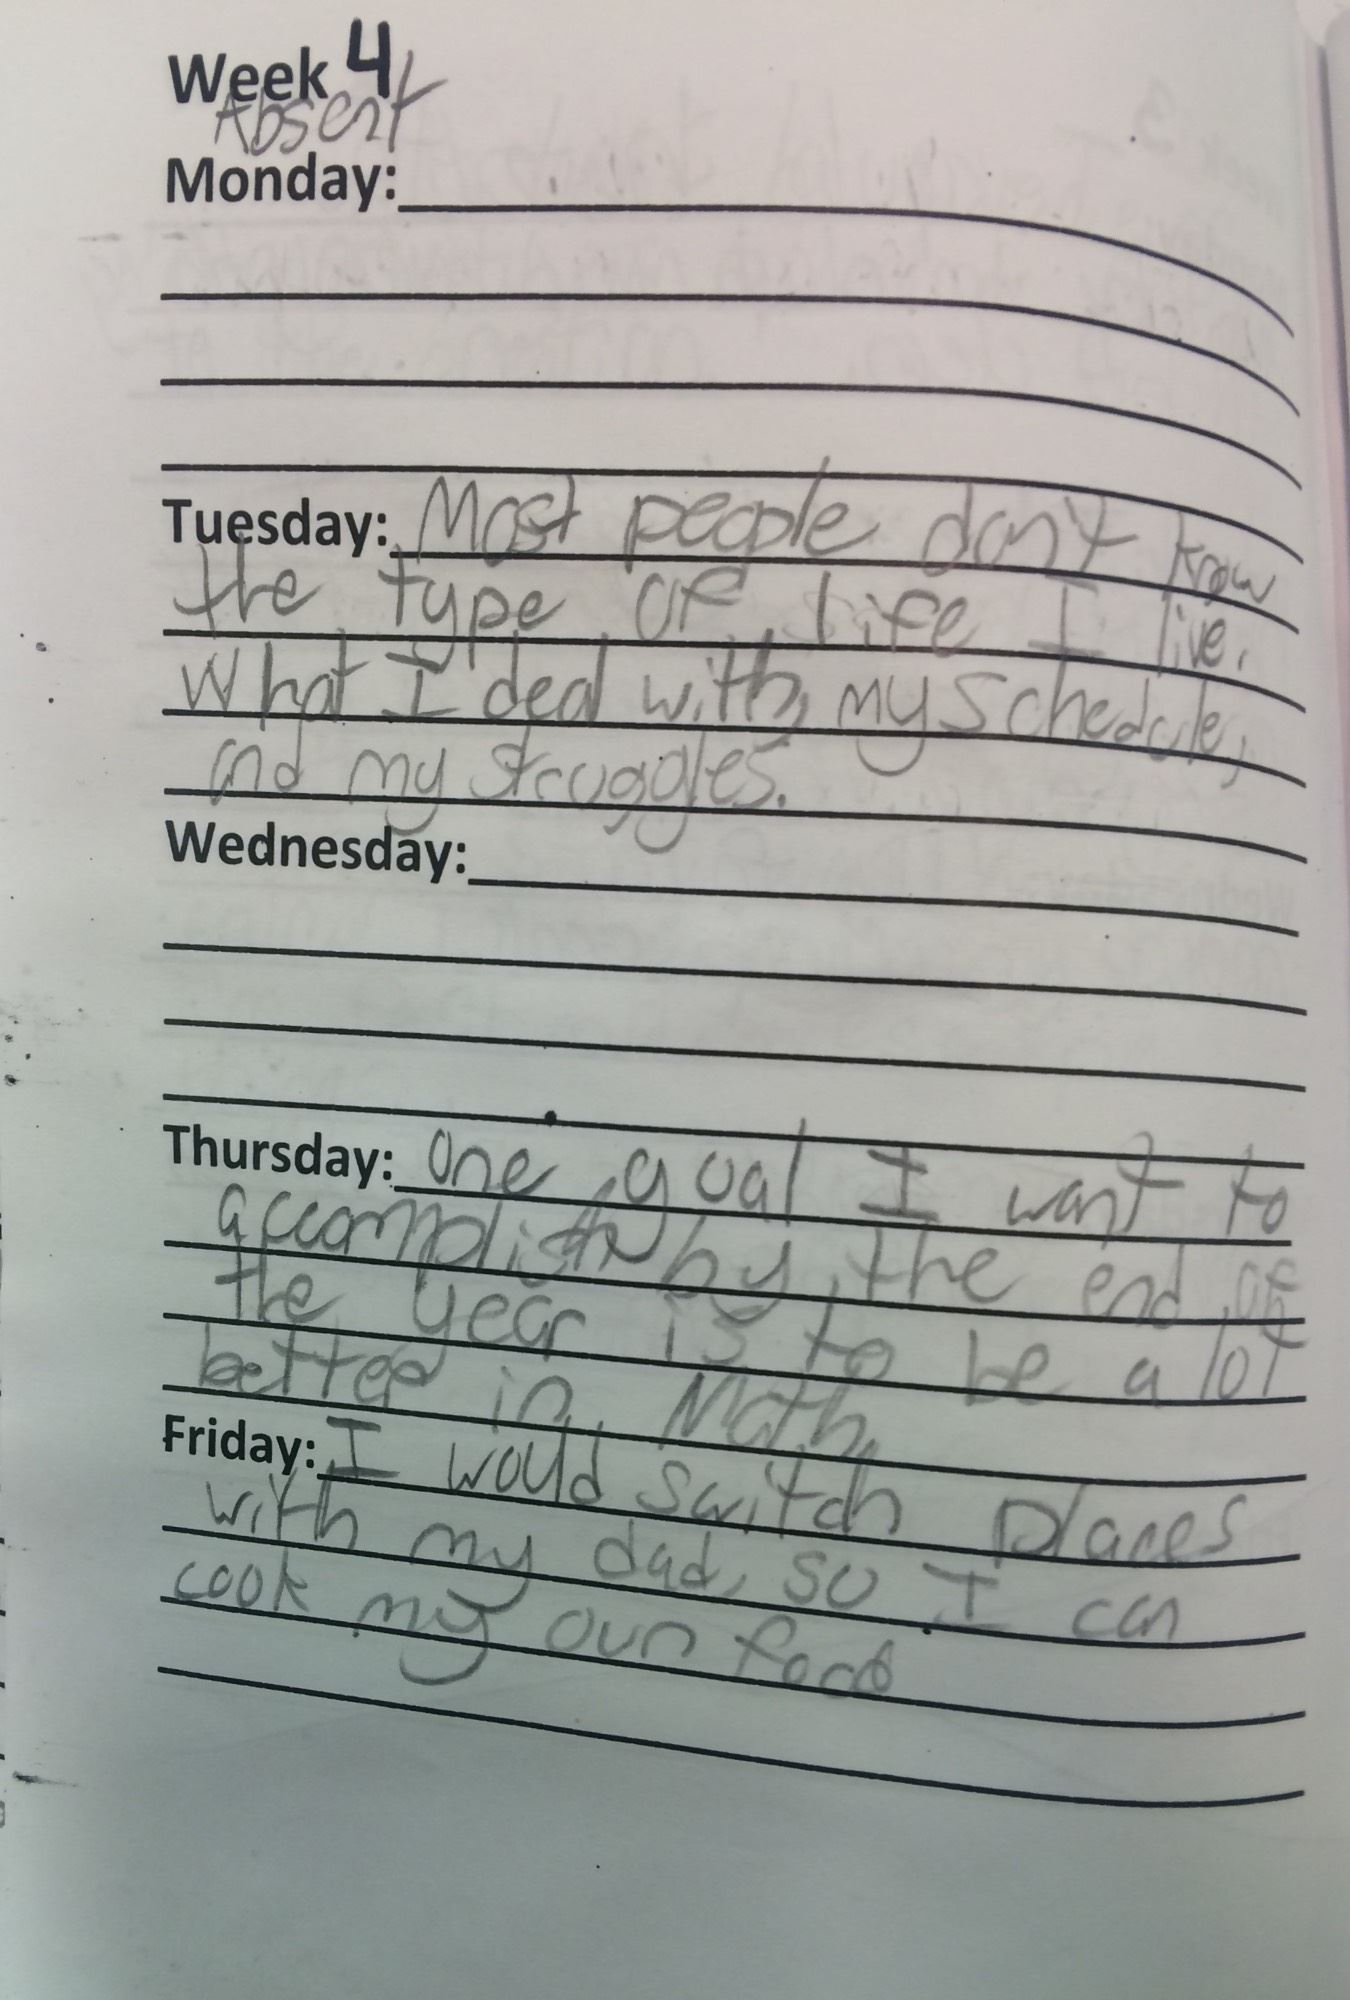 Week 4
Absent
Monday:
Tuesday: Most people don't know
the type of life I live.
What I deal with, my schedule,
and my struggles.
Wednesday:
Thursday: One goal I want to
accomplish by the end of
the year is to be a lot
better in Math.
Friday: I would switch places
with my dad, so I can
cook my own food